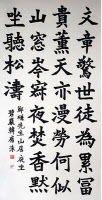 文章驚世徒為累富
貴薰天亦漫勞何似
山窗岑寂夜焚香默
坐聽松濤
先生山居夜坐